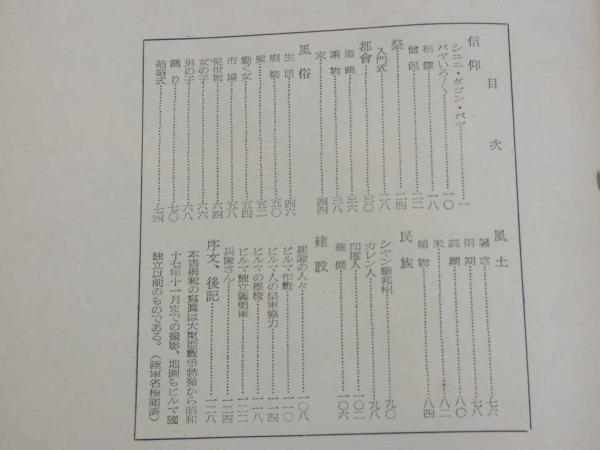 目次
信仰
シユエ・ダゴン・パヤ……一
パヤいろ〱……一〇
精靈……一八
僧侶……二二
祭……二四
入門式……二八
都會……三〇
道路……三六
乘物……三八
家……四四
風俗
生活……四六
服裝……五〇
髪……五二
働く女……五四
市場……五八
見世物……六四
女の子……六六
男の子……六八
踊り……七〇
結婚式……七四
風土
暑さ……七六
雨期……七八
高潮……八〇
米……八二
植物……八四
民族
シヤン聯邦州……九〇
カレン人……九八
印度人……一〇二
華僑……一〇六
建設
建設の人々……一〇八
ビルマ作戰……一一〇
ビルマ人の皇軍協力……一一四
ビルマの學校……一一八
ビルマ獨立義勇軍……一二二
兵隊さん……一二四
序文、後記……一二八
本書掲載の寫眞は大東亞戰爭勃發から昭和
十七年十一月までの撮影、地圖もビルマ國
獨立以前のものである。(陸軍省檢閲濟)